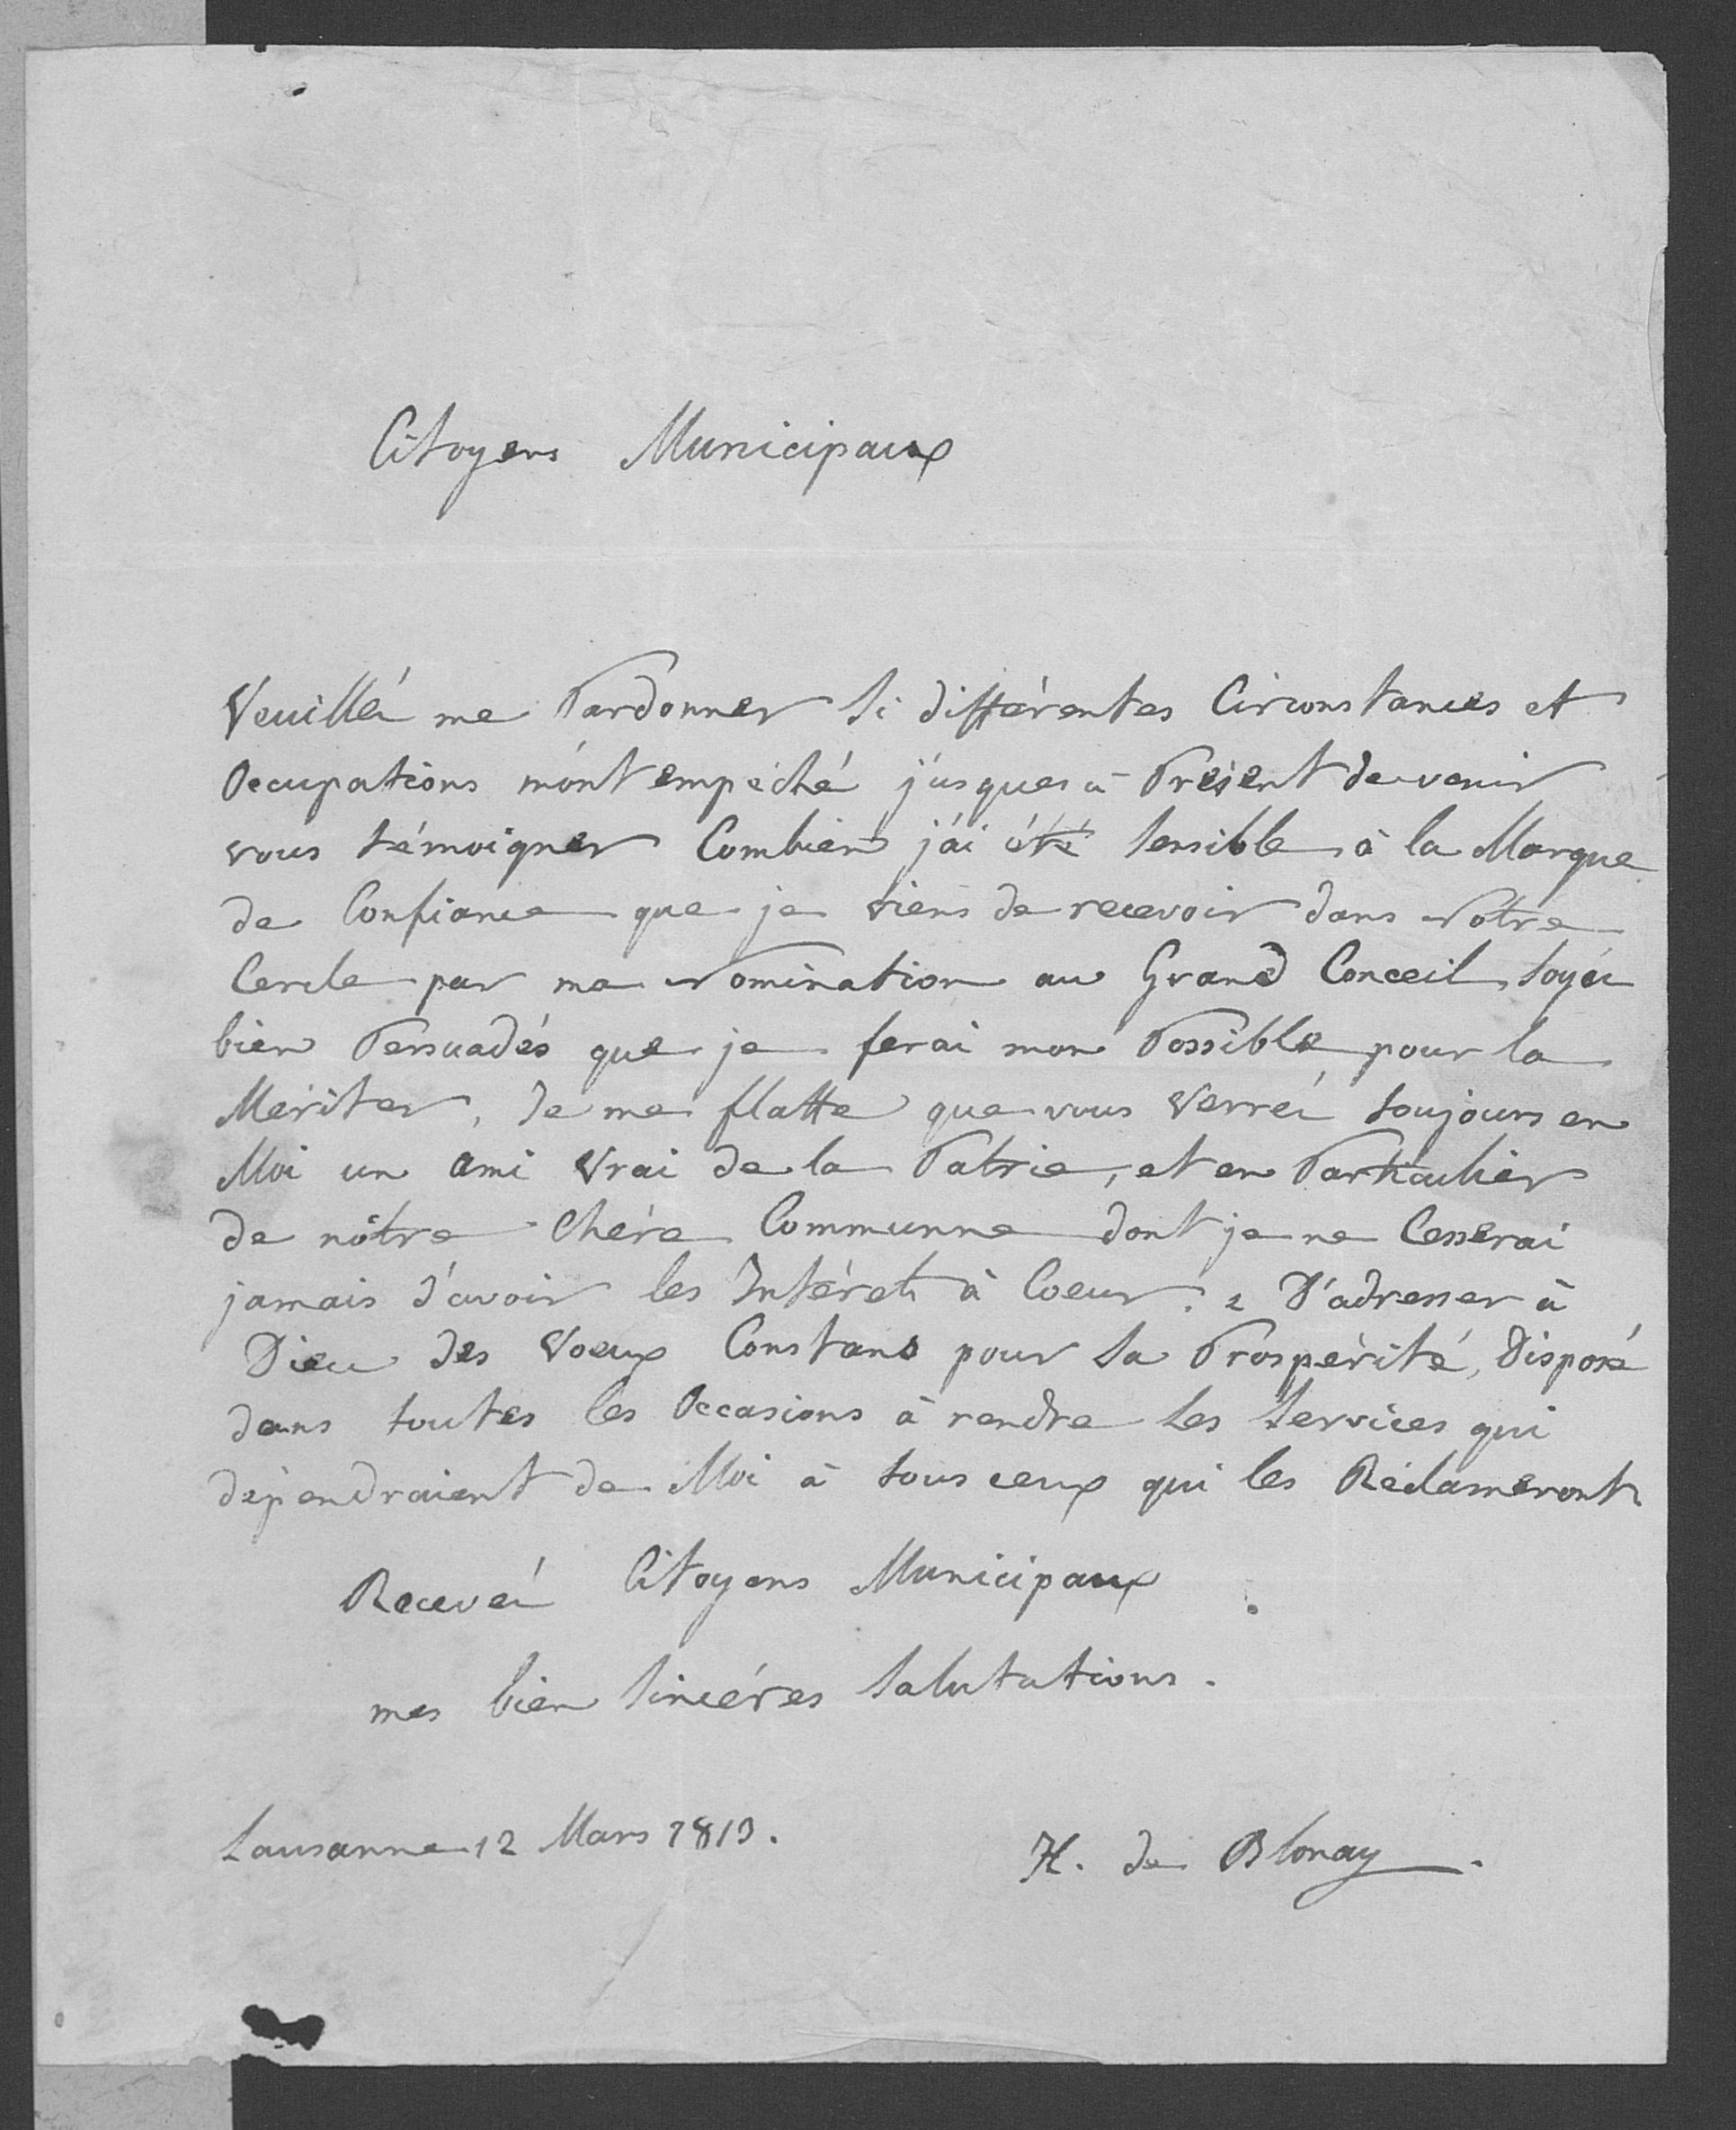 Citoyens Municipaux
Veuillés me Pardonner si différentes Circonstances et
Occupations m'ont empéché jusques à Présent de venir
vous témoigner Combien j'ai été sensible à la Marque
de Confiance que je viens de recevoir dans Votre
Cercle par ma Nomination au Grand Conceil, soyés
bien Persuadés que je ferai mon Possible pour la
Mériter, Je me flatte que vous Verrés toujours en
Moi un Ami Vrai de la Patrie, et en Particulier
de nôtre Chére Communne dont je ne Cesserai
jamais d'avoir les Intérets à Coeur. & D'adresser à
Dieu des Voeux Constans pour sa Prospérité, Disposé
dans toutes les Occasions à rendre les services qui
dépendraient de Moi à tous ceux qui les Réclameront
Recevés Citoyens Municipaux
mes bien sincéres salutations.
Lausanne 12 Mars 1813.
H. de Blonay.